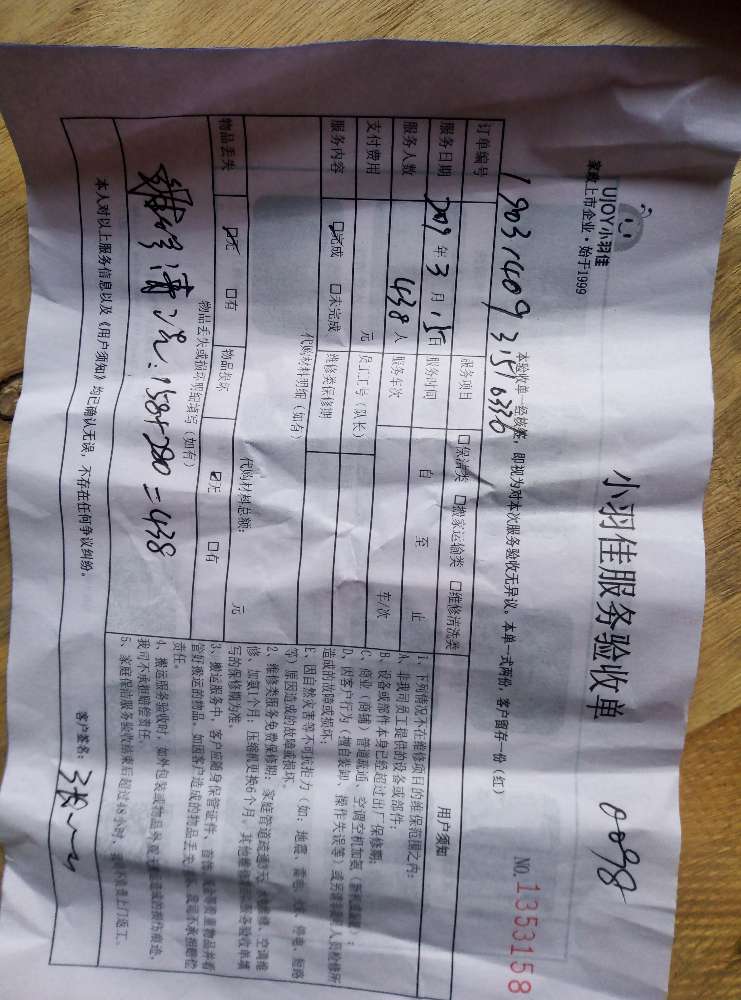 UJOY小羽佳
家政上市企业·始于1999
小羽佳服务验收单
0098
NO.1353158
本验收单一经核签,即视为对本次服务验收无异议。本单一式两份,客户留存一份(红)
订单编号 1903140931516330
服务项目 □保洁类 □搬家运输类 □维修清洗类
服务日期 2019年3月15日 服务时间 自 至 止
服务人数 438人 服务车次 车/次
支付费用 元 员工工号(队长)
服务内容 ☑完成 □未完成 维修类保修期
代购材料明细(如有)
代购材料总额: 元
物品丢失 ☑无 □有 物品损坏 ☑无 □有
物品丢失或损坏明细填写(如有)
158+280=438
本人对以上服务信息以及《用户须知》均已确认无误,不存在任何争议纠纷。
客户签名:
用户须知
1、下列情况不在维修项目的维保范围之内:
A、非我司员工提供的设备或部件;
B、设备或部件本身已经超过出厂保修期;
C、商业(商铺)管道疏通、空调空机加氨
D、因客户行为(擅自装卸、操作失误等)或另请
造成的故障或损坏;
E、因自然灾害等不可抗拒力(如:地震、雷电、火灾、停电、短路
等)原因造成的故障或损坏。
2、维修类服务免费保修期:家庭管道疏通 空调维
修、加氨1个月,压缩机更换6个月,其他维修 服务验收单填
写的保修期为准。
3、搬运服务中,客户应随身保管证件、首饰、现金等贵重物品并看
管好搬运的物品,如因客户造成的物品丢失 我司不承担赔偿
责任。
4、搬运服务验收时,如外包装或物品外观无 造成的损伤痕迹,
我司不承担赔偿责任。
5、家庭保洁服务验收结束后超过48小时, 上门返工。